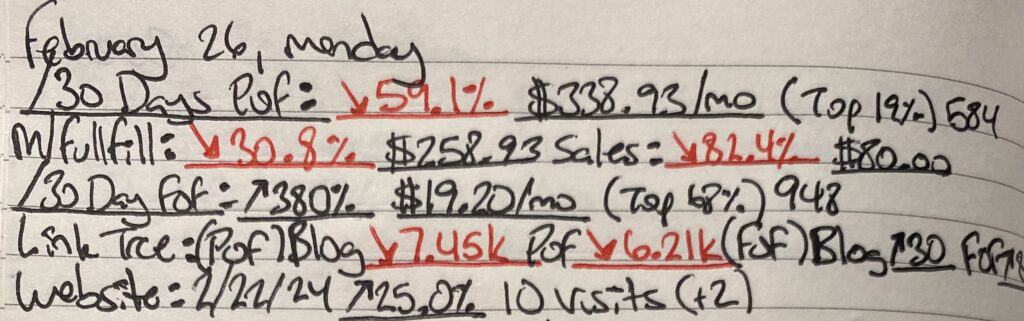 February 26, monday
/30 Days Pof: ↘59.1% $338.93/mo (Top 19%) 584
M/fullfill: ↘30.8% $258.93 Sales: ↘82.4% $80.00
/30 Day Fof: ↗380% $19.20/mo (Top 68%) 948
Link Tree: (Pof) Blog ↘7.45k Pof ↘6.21k (Fof) Blog ↗30 Fof
Website: 2/22/24 ↗25.0% 10 visits (+2)